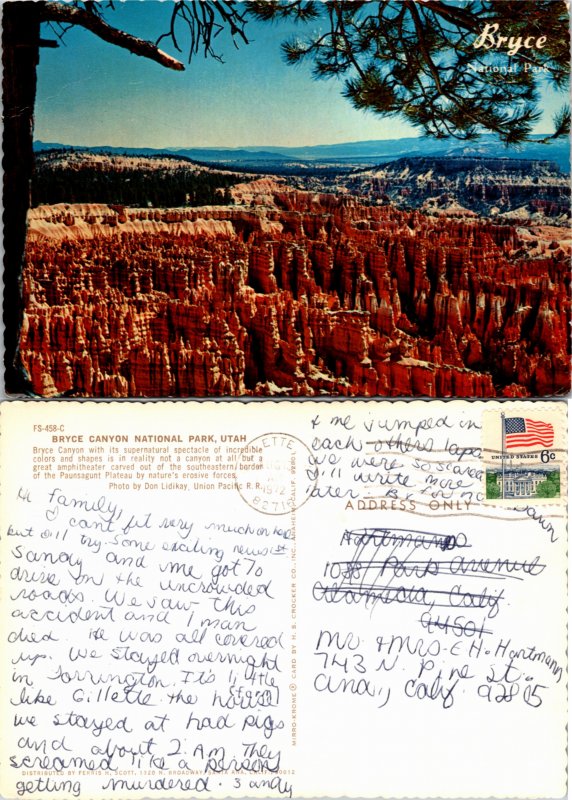 Bryce
National Park
FS-458-C
BRYCE CANYON NATIONAL PARK, UTAH
Bryce Canyon with its supernatural spectacle of incredible
colors and shapes is in reality not a canyon at all but a
great amphitheater carved out of the southeastern border
of the Paunsagunt Plateau by nature's erosive forces.
Photo by Don Lidikay, Union Pacific R.R.
Hi Family,
I can't fit very much on here
but I'll try. Some exciting news is
Sandy and me got to
drive on the uncrowded
roads. We saw this
accident and 1 man
died. He was all covered
up. We stayed overnight
in Torrington. It's little
like Gillette. the house
we stayed at had pigs
and about 2 A.M. they
screamed like a person
getting murdered. Sandy
& me jumped in
each others laps
we were so scared
I'll write more
later. Bye for now
Dawn
DISTRIBUTED BY FERRIS H. SCOTT, 1120 N. BROADWAY, SANTA ANA, CALIF. 92012
MIRRO-KROME® CARD BY H. S. CROCKER CO., INC.
1972
82716
6c
UNITED STATES
ADDRESS ONLY
Hartmann
1088 Park Avenue
Alameda, Calif.
94501
Mr. & Mrs. E. H. Hartmann
743 N. Pine St.
Ana., Calif. 92805